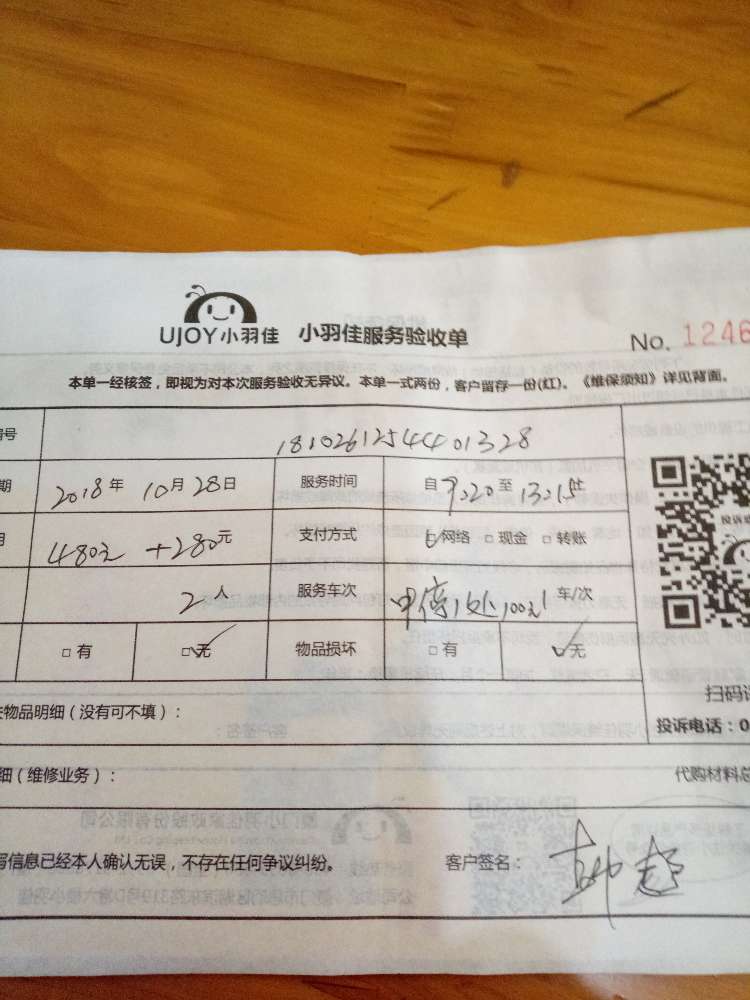 UJOY小羽佳 小羽佳服务验收单
No. 1246
本单一经核签，即视为对本次服务验收无异议。本单一式两份，客户留存一份(红)。《维保须知》详见背面。
号 18102612544401328
期 2018年 10月 28日 服务时间 自 9:20 至 13:01
480元 +280元 支付方式 网络 □现金 □转账
2人 服务车次 中停1处100元 车/次
□有 □无 物品损坏 □有 □无
物品明细（没有可不填）：
扫码
投诉电话：0
细（维修业务）：
代购材料总
信息已经本人确认无误，不存在任何争议纠纷。 客户签名：